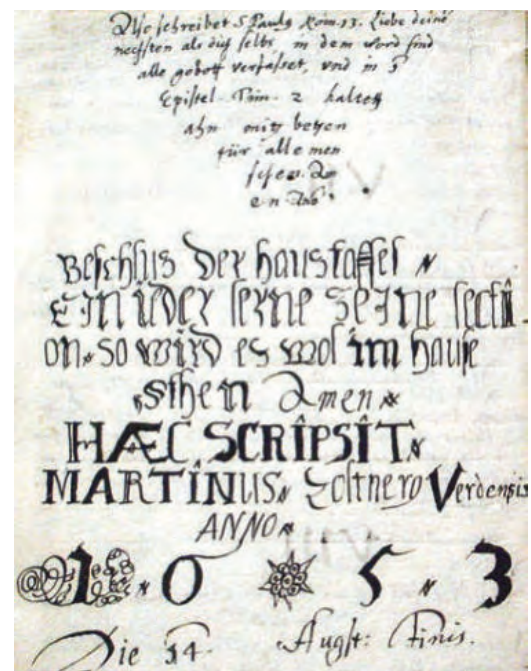 Also schreibet S Paulg Rom. 13. Liebe deine
nechsten als dich selbs, in dem word sind
alle gebott verfasset, vnd in 5
Epistel Tim. 2 haltet
ahn mitt beten
für alle men
schen. A
en
Beschlus Der haustaffel
Ein ider lerne seine lecti
on so wird es wol im hause
sthen Amen
HÆC SCRIPSIT
MARTINUS Verdensis
ANNO
1 6 5 3
Die 14 Augst: Finis.